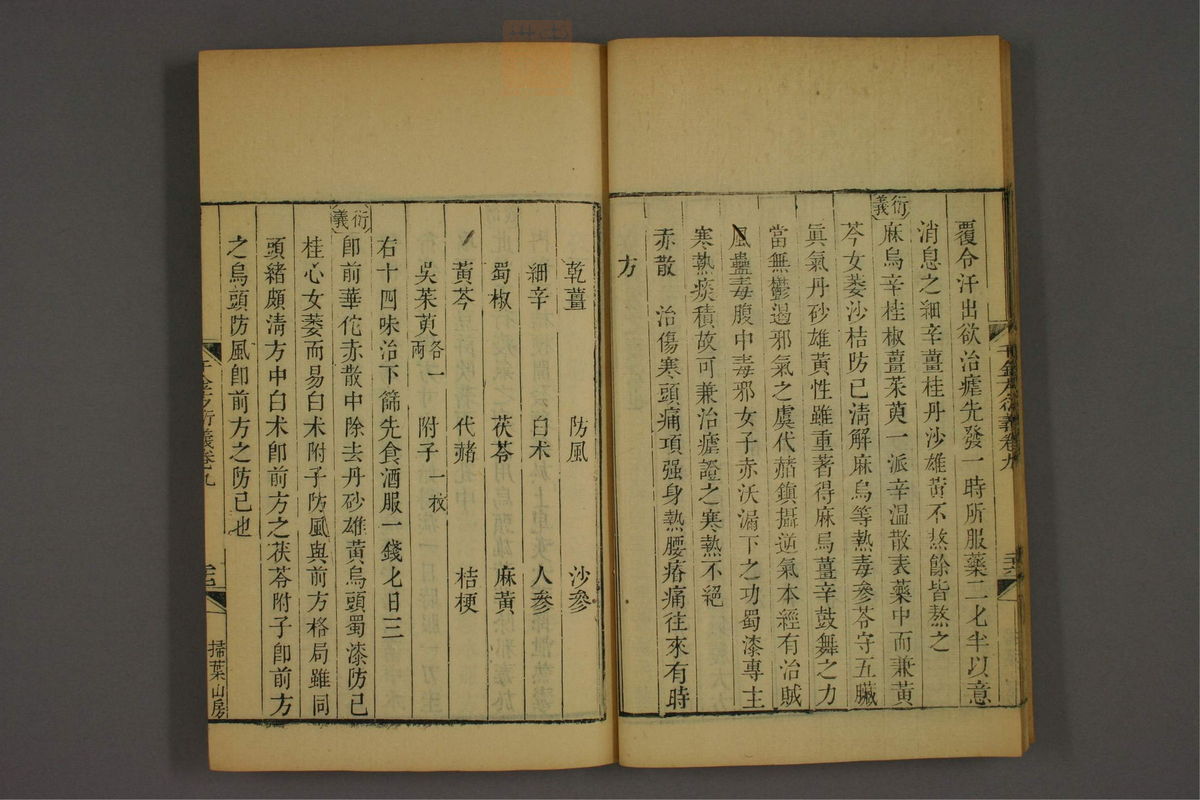 覆令汗出欲治瘧先發一時所服藥二匕半以意
消息之細辛薑桂丹沙雄黃不熬餘皆熬之
衍義
麻烏辛桂椒薑茱萸一派辛温散表藥中而兼黃
芩女萎沙桔防已淸解麻烏等熱毒參苓守五臟
眞氣丹砂雄黃性雖重著得麻烏薑辛鼓舞之力
當無鬱遏邪氣之虞代赭鎭攝逆氣本經有治賊
風蠱毒腹中毒邪女子赤沃漏下之功蜀漆專主
寒熱痰積故可兼治瘧證之寒熱不絕
赤散 治傷寒頭痛項强身熱腰瘠痛往來有時
方
千金方衍義卷九
乾薑 防風 沙參
細辛 白朮 人參
蜀椒 茯苓 麻黃
黃芩 代赭 桔梗
吳茱萸各一兩 附子一枚
右十四味治下篩先食酒服一錢匕日三
衍義
卽前華佗赤散中除去丹砂雄黃烏頭蜀漆防已
桂心女萎而易白朮附子防風與前方格局雖同
頭緒頗淸方中白朮卽前方之茯苓附子卽前方
之烏頭防風卽前方之防已也
掃葉山房